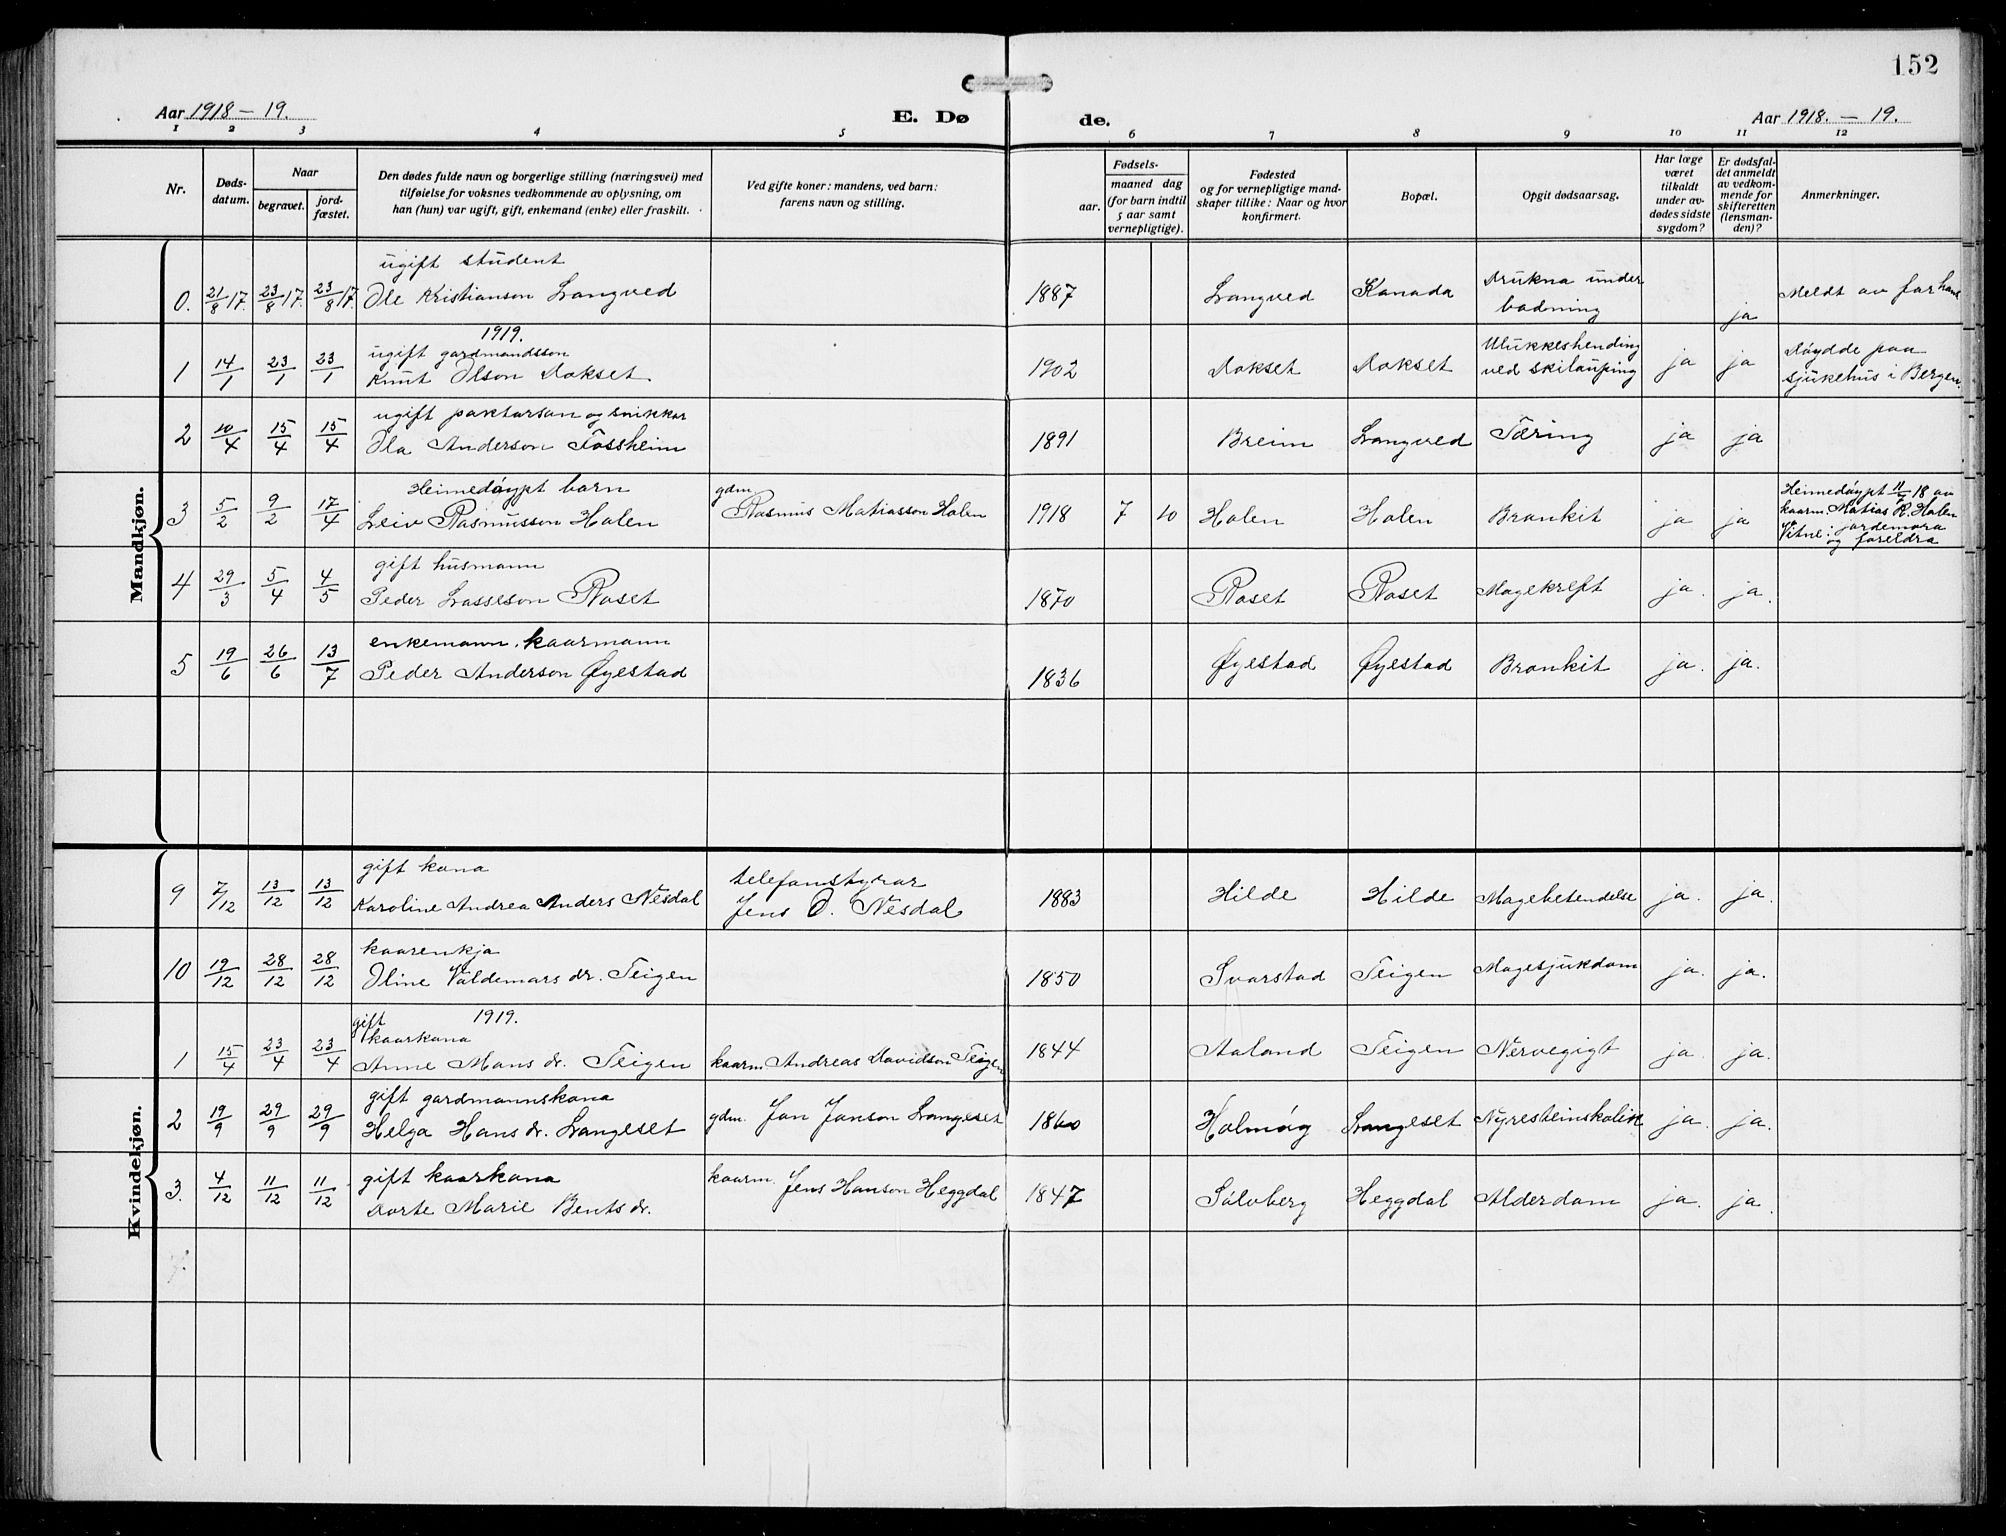 152
Aar 1918 – 19.
E. Dø
de.
Aar 1918. – 19.
1 2 3 4 5 6 7 8 9 10 11 12
Nr.
Døds-
datum.
Naar
begravet.
jord-
fæstet.
Den dødes fulde navn og borgerlige stilling (næringsvei) med
tilføielse for voksnes vedkommende av oplysning, om
han (hun) var ugift, gift, enkemand (enke) eller fraskilt.
Ved gifte koner: mandens, ved barn:
farens navn og stilling.
Fødsels-
aar.
maaned dag
(for barn indtil
5 aar samt
vernepligtige).
Fødested
og for vernepligtige mand-
skaper tillike: Naar og hvor
konfirmert.
Bopæl.
Opgit dødsaarsag.
Har læge
været
tilkaldt
under av-
dødes sidste
sygdom?
Er dødsfal-
det anmeldt
av vedkom-
mende for
skifteretten
(lensman-
den)?
Anmerkninger.
Mandkjøn.
ugift student
0. 21/8 17. 23/8 17. 23/8 17. Ole Kristianson Langved 1887 Langved Kanada Drukna under
badning ja Meldt av far hans
1919.
ugift gardmandsson
1 14/1 23/1 23/1 Knut Olson Dokset. 1902 Dokset Dokset Ulukkeshending
ved skilauping ja ja Døydde paa
sjukehus i Bergen.
ugift paktarson og snikkar
2 10/4 15/4 15/4 Ola Anderson Fossheim 1891 Breim Langved Tæring ja ja
Heimedøypt barn
3 5/2 9/2 17/4 Leiv Rasmusson Holen gdm.
Rasmus Matiasson Holen 1918 7 10 Holen Holen Bronkit ja ja Heimedøypt 11/7 18 av
kaarm. Matias R. Holen
Vitne: jordemora
og foreldra
gift husmann
4 29/3 5/4 4/5 Peder Lasseson Roset 1870 Roset Roset Magekreft ja. ja.
enkemann, kaarmann
5 19/6 26/6 13/7 Peder Anderson Øyestad 1836 Øyestad Øyestad Bronkit ja. ja.
Kvindekjøn.
gift kona
9 7/12 13/12 13/12 Karoline Andrea Anders Nesdal telefonstyrar
Jens O. Nesdal 1883 Hilde Hilde Magebetendelse ja. ja.
kaarenkja
10 19/12 28/12 28/12 Oline Valdemars dr. Teigen 1850 Svarstad Teigen Magesjukdom ja. ja.
1919.
gift
kaarkona
1 15/4 23/4 23/4 Anne Mons dr. Teigen kaarm. Andreas Davidson Teigen 1844 Aaland Teigen Nervegigt ja. ja.
gift gardmannskona
2 19/9 29/9 29/9 Helga Hans dr. Langeset gdm. Jon Jonson Langeset 1860 Holmøy Langeset Nyresteinskolik ja. ja.
gift kaarkona
3. 4/12 11/12 11/12 Dorte Marie Bents dr. kaarm. Jens Hanson Heggdal 1847 Sølvberg Heggdal Alderdom ja. ja.